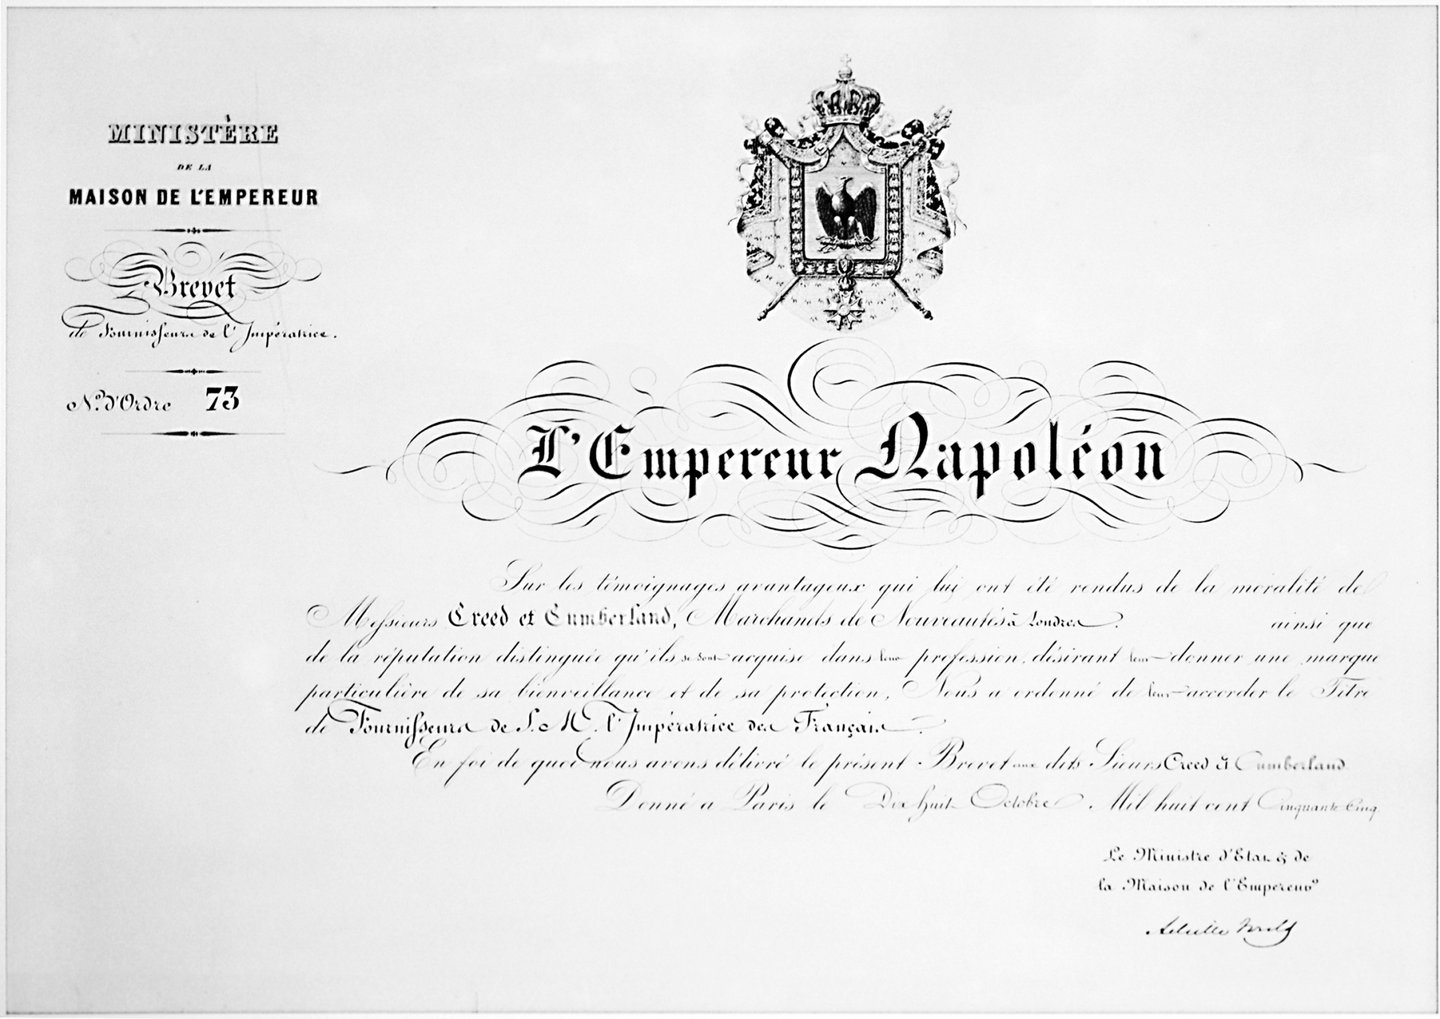 MINISTÈRE
DE LA
MAISON DE L'EMPEREUR
Brevet
de Fournisseurs de l'Impératrice.
No. d'Ordre 73
L'Empereur Napoléon
Sur les témoignages avantageux qui lui ont été rendus de la moralité de
Messieurs Creed et Cumberland, Marchands de Nouveautés à Londres. ainsi que
de la réputation distinguée qu'ils se sont acquise dans leur profession, désirant leur donner une marque
particulière de sa bienveillance et de sa protection, Nous a ordonné de leur accorder le Titre
de Fournisseurs de S. M. l'Impératrice des Français.
En foi de quoi nous avons délivré le présent Brevet aux dits Sieurs Creed & Cumberland
Donné a Paris le Dix huit Octobre Mil huit cent Cinquante Cinq
Le Ministre d'Etat & de
la Maison de l'Empereur
Achille Fould